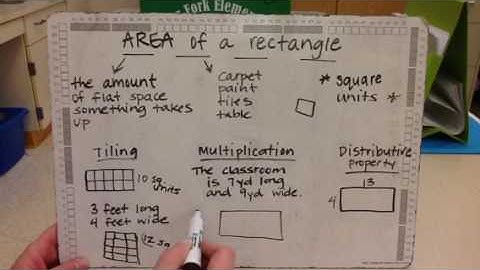 Fork Elemen
AREA of a rectangle
the amount
of flat space
something takes
up
carpet
paint
tiles
table
* square
units *
Tiling
10 sq
units
3 feet long
4 feet wide
12 sq
Multiplication
The classroom
is 7yd long
and 9yd wide.
Distributive
property
13
4